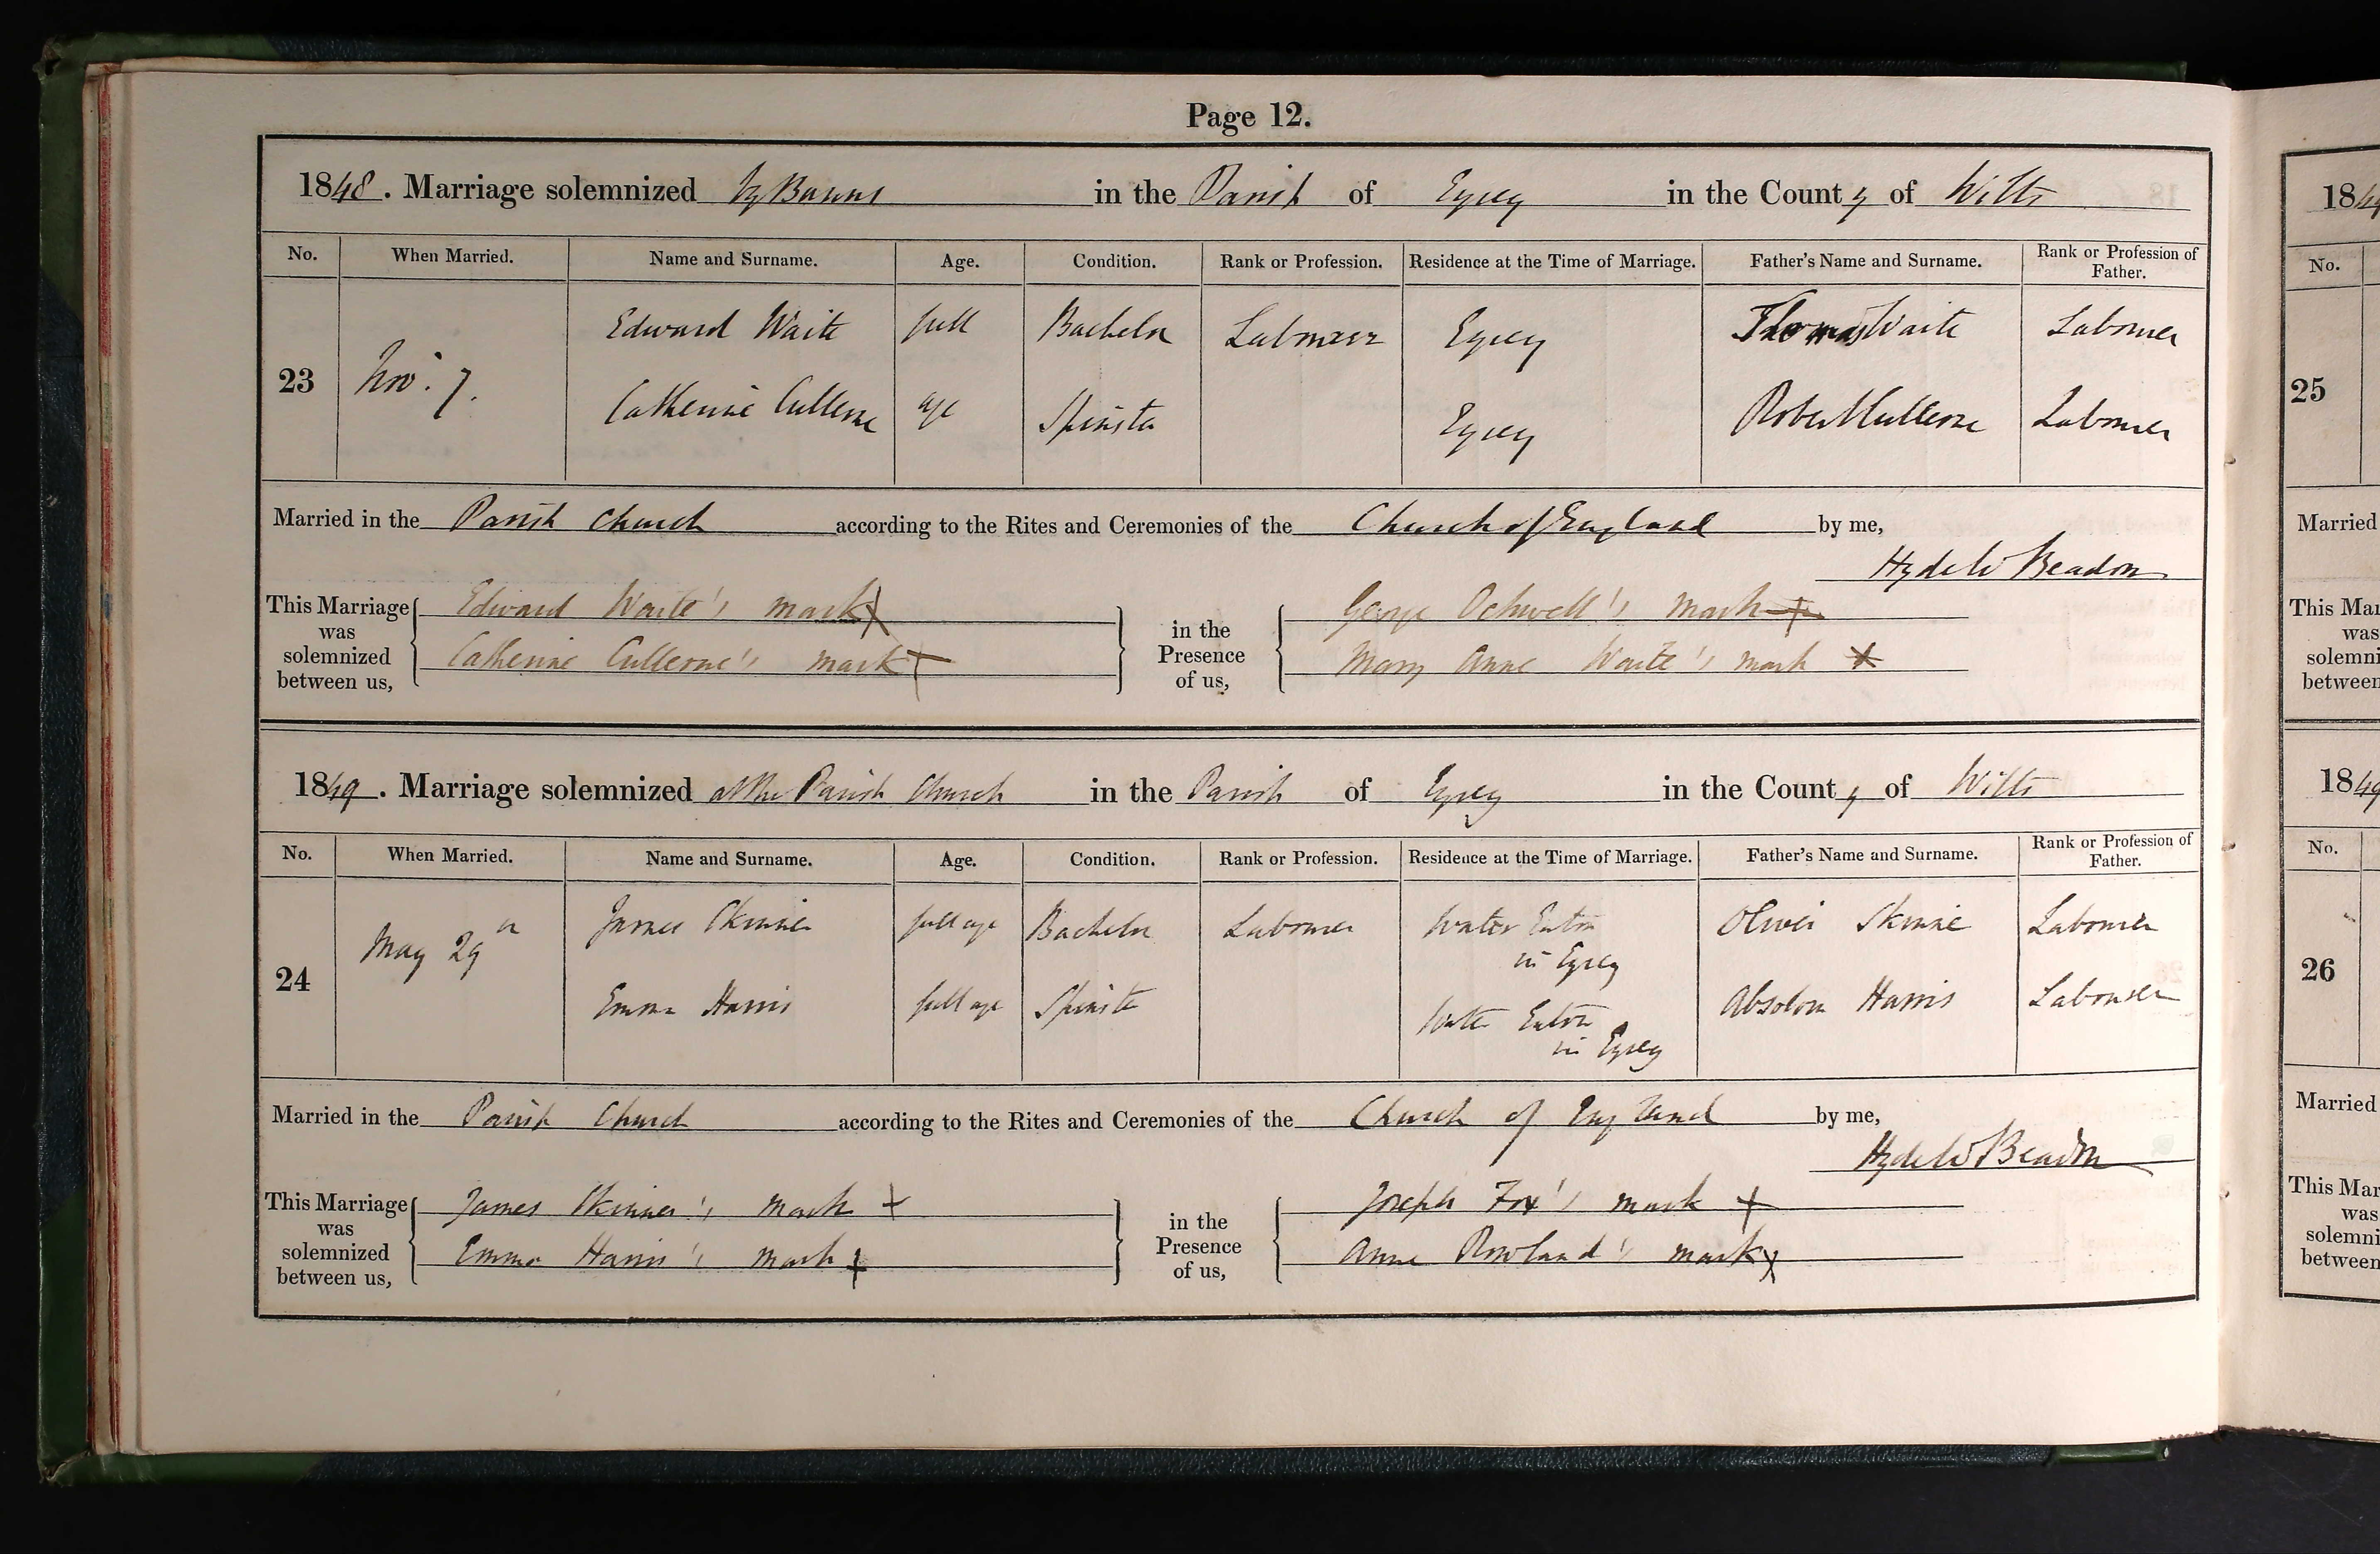 Page 12.
1848. Marriage solemnized by Banns in the Parish of Eysey in the County of Wilts
No. When Married. Name and Surname. Age. Condition. Rank or Profession. Residence at the Time of Marriage. Father's Name and Surname. Rank or Profession of Father.
23 Nov. 7. Edward Waite full Bachelor Labourer Eysey Thomas Waite Labourer
Catherine Cullerne age Spinster Eysey Robert Cullerne Labourer
Married in the Parish Church according to the Rites and Ceremonies of the Church of England by me,
Hyde W Beadon
This Marriage was solemnized between us, Edward Waite's mark X in the Presence of us, George Ockwell's mark +
Catherine Cullerne's mark + Mary Anne Waite's mark X
1849. Marriage solemnized at the Parish Church in the Parish of Eysey in the County of Wilts
No. When Married. Name and Surname. Age. Condition. Rank or Profession. Residence at the Time of Marriage. Father's Name and Surname. Rank or Profession of Father.
24 May 29 James Skinner full age Bachelor Labourer Water Eaton in Eysey Oliver Skinner Labourer
Emma Harris full age Spinster Water Eaton in Eysey Absolom Harris Labourer
Married in the Parish Church according to the Rites and Ceremonies of the Church of England by me,
Hyde W Beadon
This Marriage was solemnized between us, James Skinner's mark + in the Presence of us, Joseph Fox's mark +
Emma Harris's mark + Anne Rowland's mark X
184
No.
25
Married
This Mar
was
solemni
between
1849
No.
26
Married
This Mar
was
solemni
between